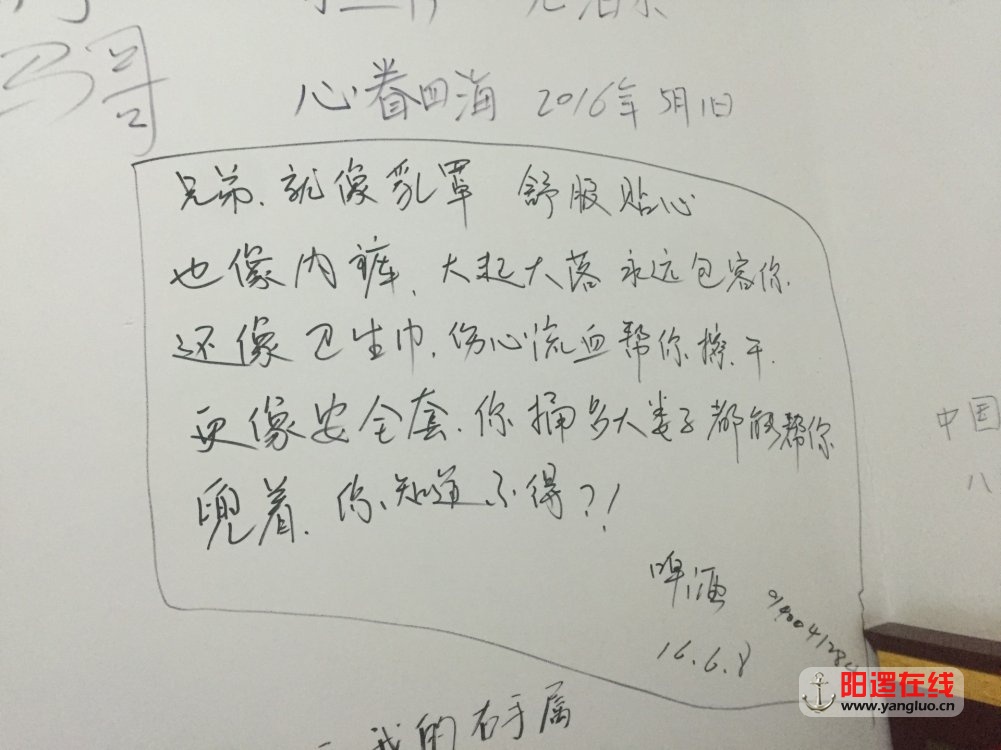 哥
心眷四海 2016年5月1日
兄弟、就像乳罩 舒服贴心
也像内裤、大起大落永远包容你.
还像卫生巾、伤心流血帮你擦干.
更像安全套、你捅多大娄子都能帮你
兜着、你知道不得?!
啤酒
16.6.8
中国
八
我的右手属
阳逻在线
www.yangluo.cn